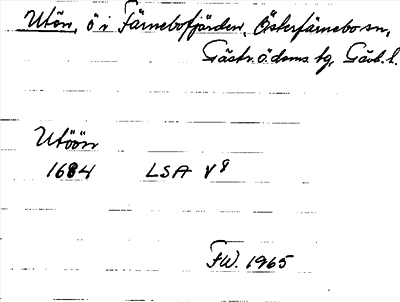 Utön, ö i Färnebofjärden, Österfärnebo sn,
Gästr. ö. doms. tg, Gävb. l.
Utöön
1684 LSA V 8
FW. 1965